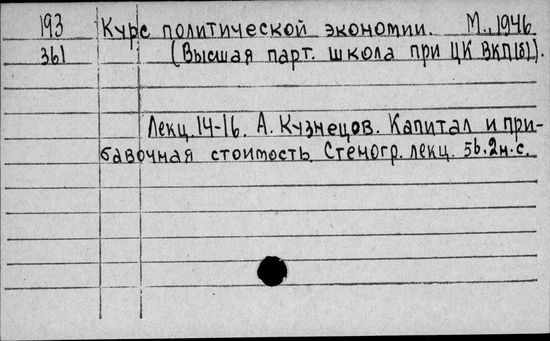 193 Курс политической экономии. М., 1946
361 (Высшая парт. школа при ЦК ВКП(б)).
Лекц. 14-16. А. Кузнецов. Капитал и при-
бавочная стоимость. Стеногр. лекц. 56.2н.с.